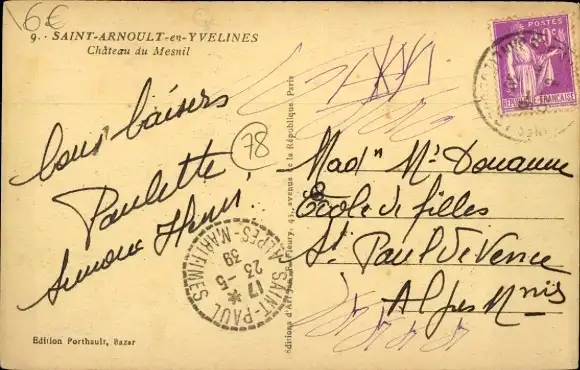 6€
9. - SAINT-ARNOULT-en-YVELINES
Château du Mesnil
Bons baisers
Paulette
Simone Henri
78
SAINT-PAUL
ALPES-MARITIMES
17 - 5
23
39
Edition Porthault, Bazar
Editions d'Art 43, avenue de la République Paris
POSTES
REPUBLIQUE FRANÇAISE
Madⁿ Mˡ Douanne
Ecole de filles
Sᵗ Paul de Vence
Alpes Mⁿⁱˢ